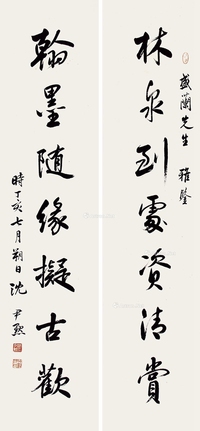 林泉到處資清賞
盛蘭先生 雅鑒
翰墨隨緣擬古歡
時丁亥七月朔日 沈尹默